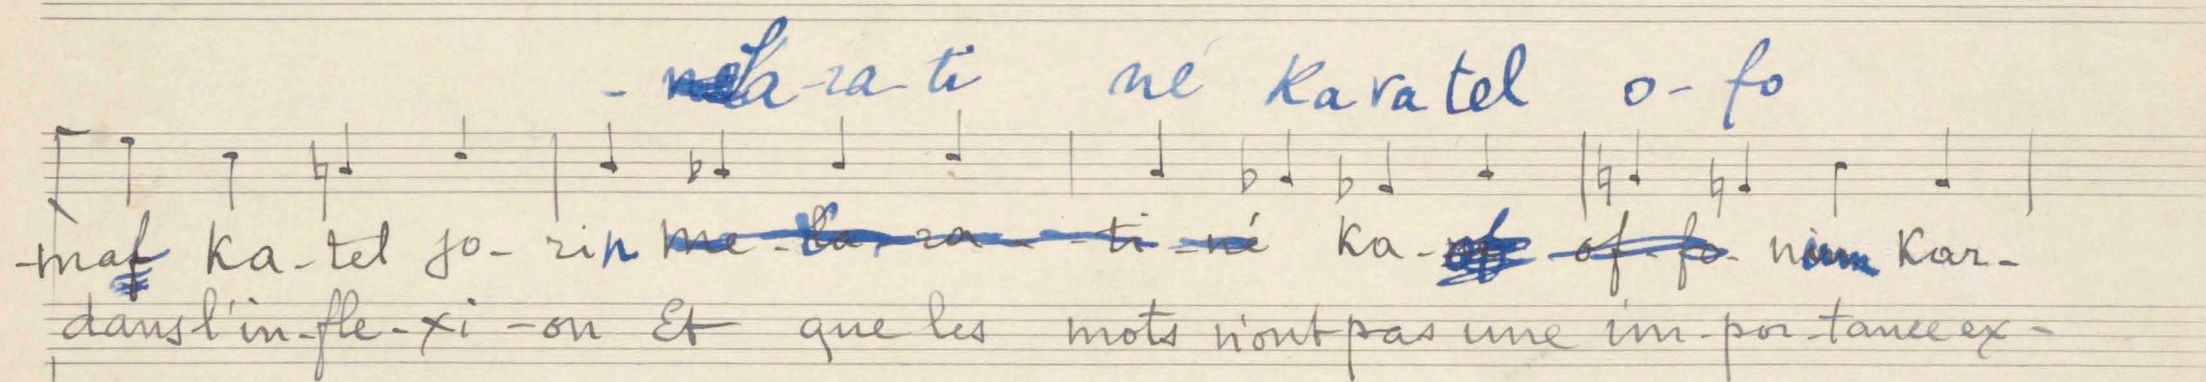 - la-ra-ti né Karatel o-fo
-maf Ka-tel jo-rin me-la-ra-ti-né Ka- of-fo- num Kar-
dans l'in-fle-xi-on Et que les mots n'ont pas une im-por-tance ex-